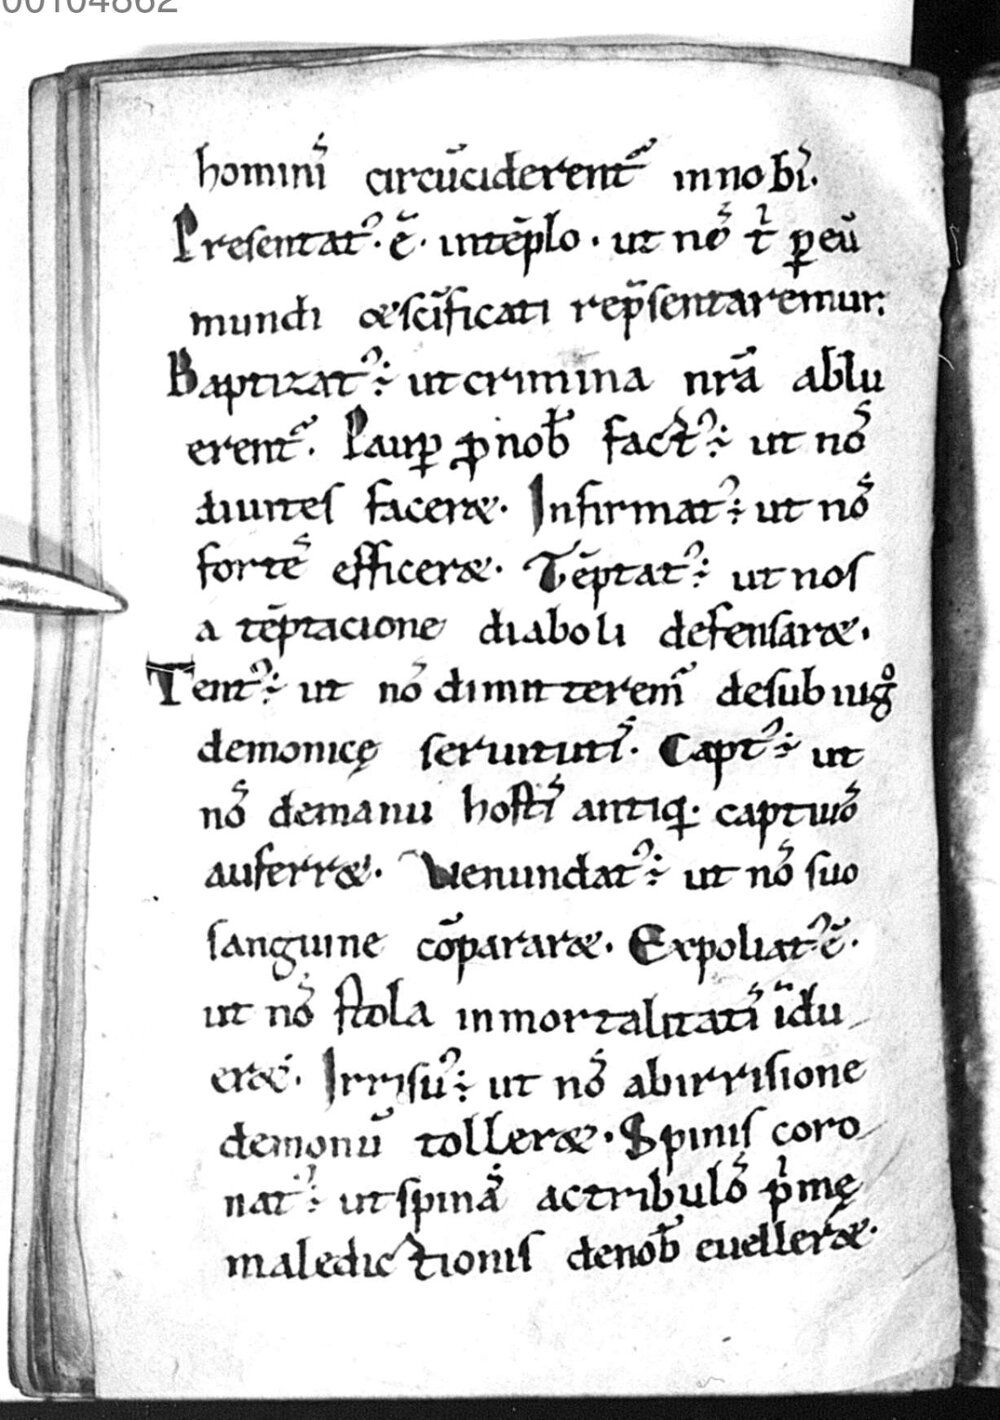 00104862
hominı᷒ circūciderent᷒ in nobı᷒.
Presentatꝰ· ē· intēplo · ut no᷒ tͥ ꝑ eū
mundi & sc̄ificati rep̄sentaremur:
Baptizatꝰ ÷ ut crimina nr̄a ablu
erent᷒. Paup̱ ꝓ nob̄ factꝰ ÷ ut no᷒
diuites facer&. Infirmatꝰ ÷ ut no᷒
forte᷒ efficer&. Tēptatꝰ ÷ ut nos
a tēptacione diaboli defensar&.
Tentꝰ ÷ ut no᷒ dimitterem᷒ de sub iugͦ
demonicę seruituti᷒. Captꝰ ÷ ut
no᷒ de manu hosti᷒ antiq· captiuo᷒
auferr&. Uenundatꝰ ÷ ut no᷒ suo
sanguine cōparar&. Expoliatꝰ ē·
ut no᷒ stola inmortalitati᷒ īdu
er&. Irrisuꝰ ÷ ut no᷒ ab irrisione
demonū toller&. Spinis coro
natꝰ ÷ ut spina᷒ ac tribulo᷒ pͥmę
maledictionis de nob̄ eueller&.